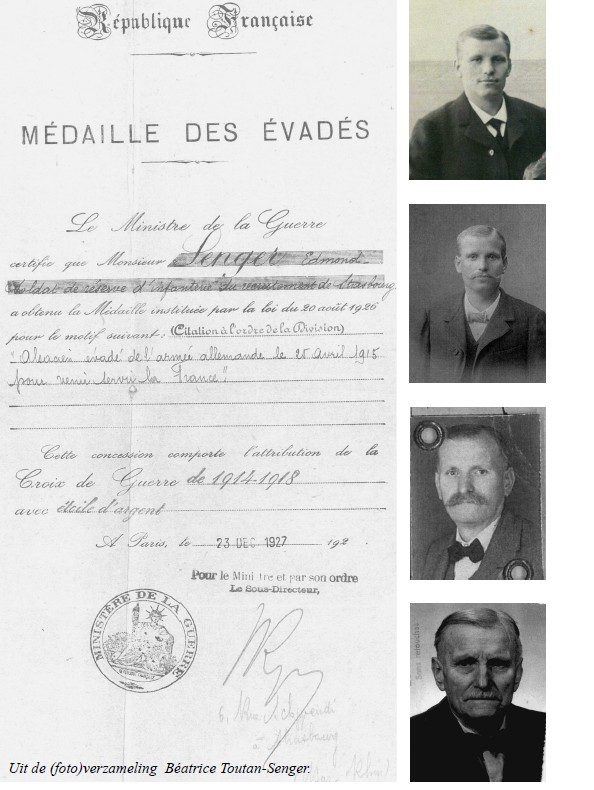 République Française
MÉDAILLE DES ÉVADÉS
Le Ministre de la Guerre
certifie que Monsieur Senger Edmond
Soldat de réserve d'infanterie du recrutement de Strasbourg
a obtenu la Médaille instituée par la loi du 20 août 1926
pour le motif suivant: (Citation à l'ordre de la Division)
"Alsacien évadé de l'armée allemande le 25 avril 1915
pour venir servir la France"
Cette concession comporte l'attribution de la
Croix de Guerre de 1914-1918
avec étoile d'argent
A Paris, le 23 DEC 1927 192
Pour le Mini tre et par son ordre
Le Sous-Directeur,
MINISTÈRE DE LA GUERRE
6, Rue
à Strasbourg
Uit de (foto)verzameling Béatrice Toutan-Senger.